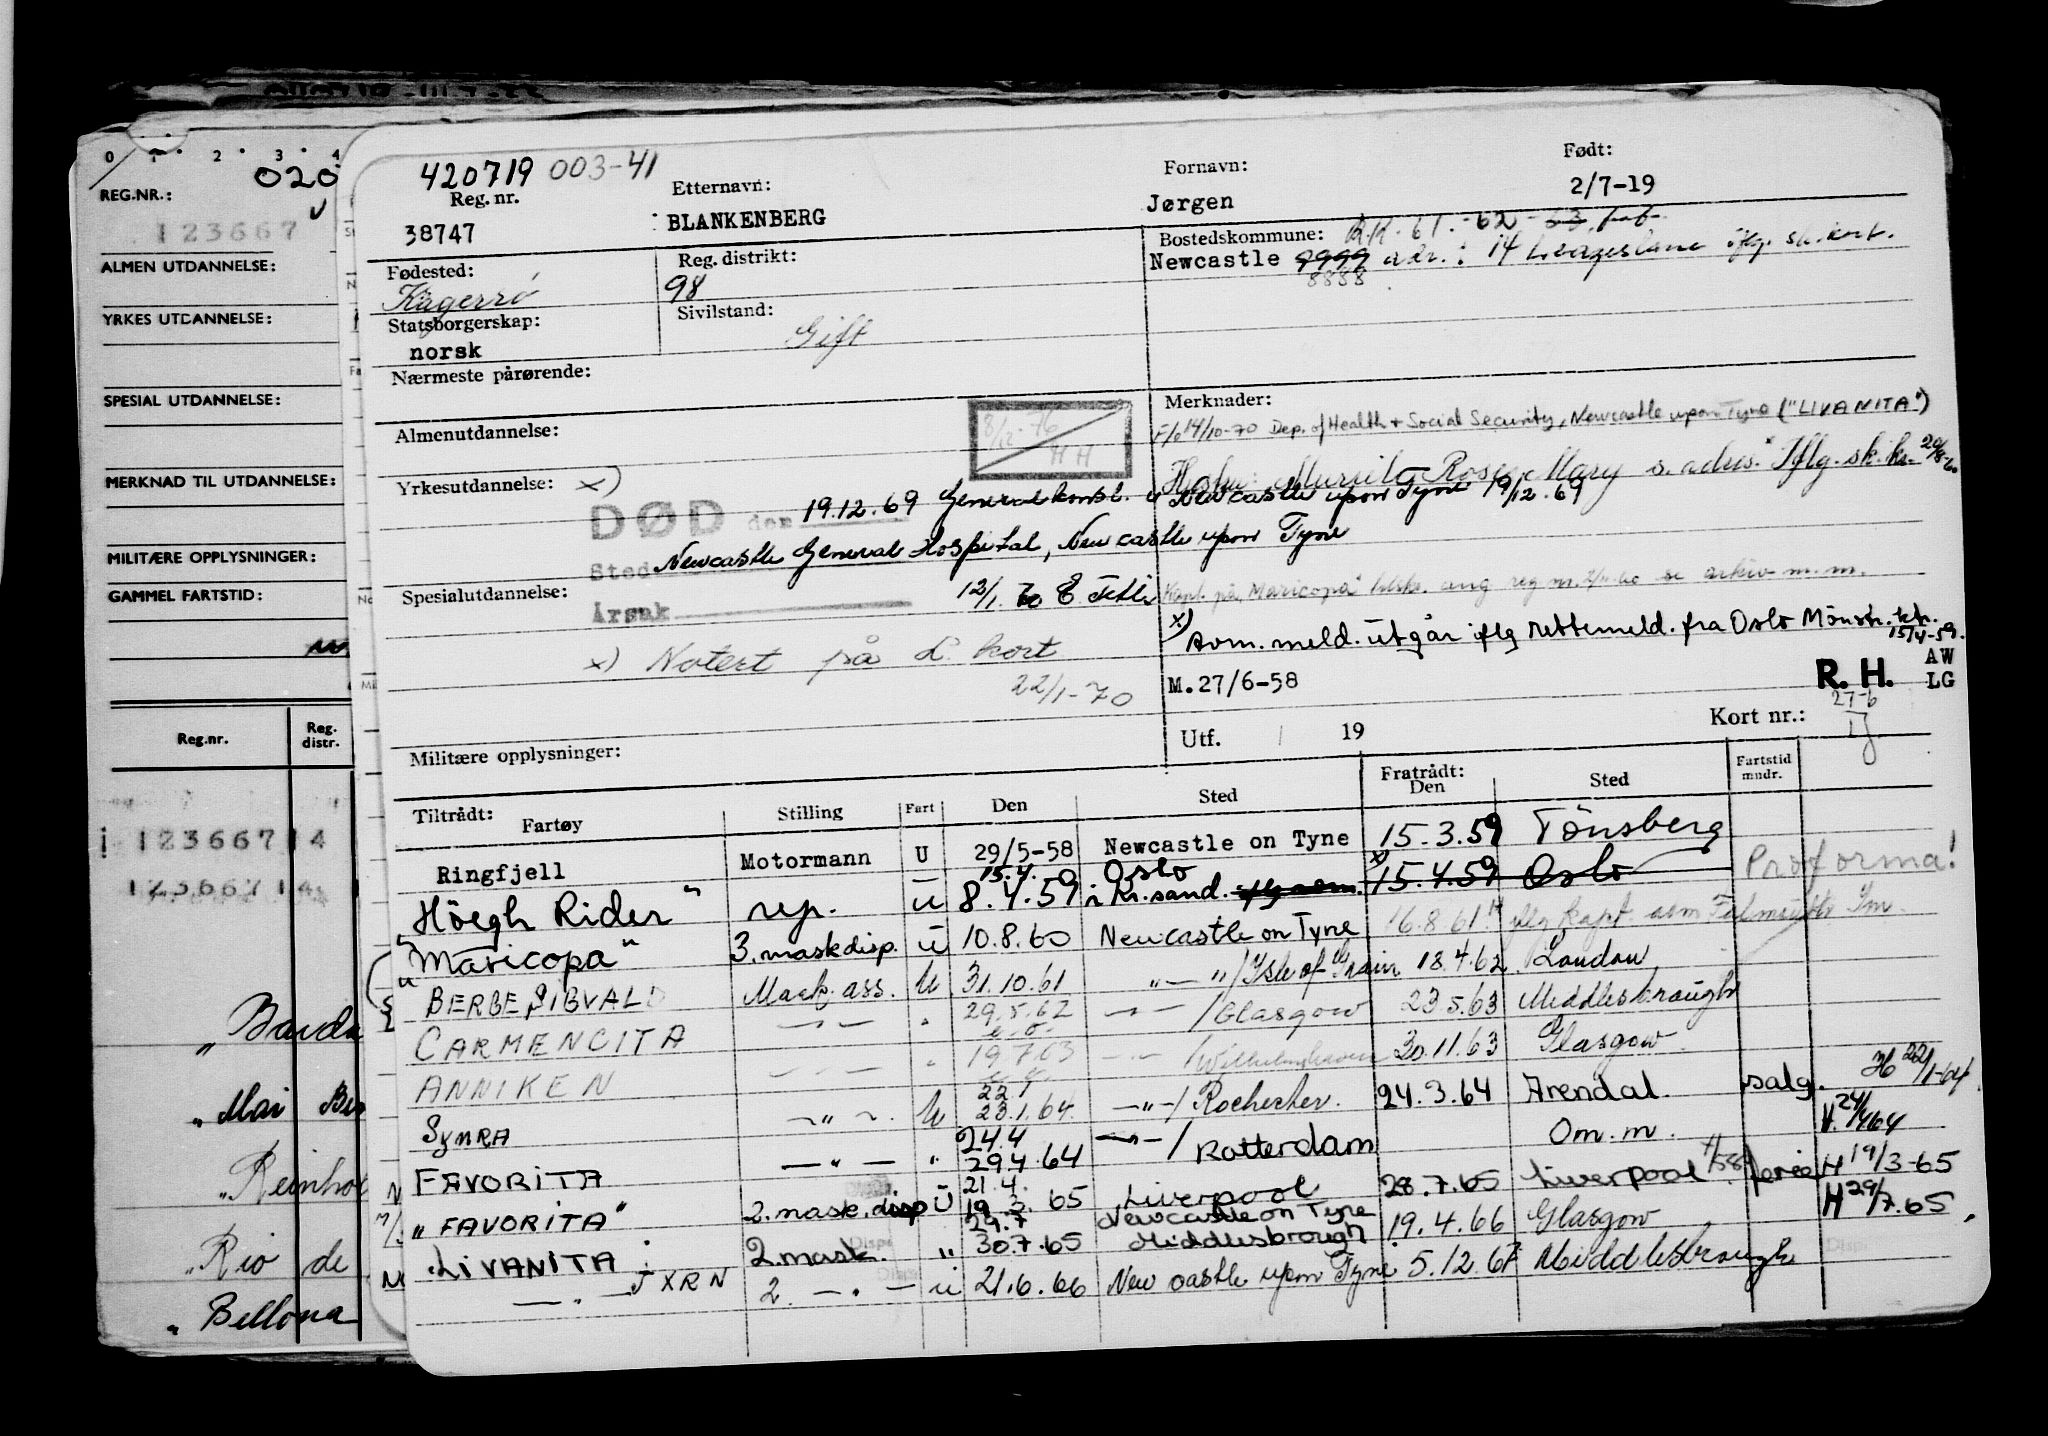 0 1 2 3 4
REG.NR.:
020
123667
ALMEN UTDANNELSE:
YRKES UTDANNELSE:
SPESIAL UTDANNELSE:
MERKNAD TIL UTDANNELSE:
MILITÆRE OPPLYSNINGER:
GAMMEL FARTSTID:
Reg.nr. Reg. distr.
123667 4
123667 4
"Mai
Rio de
Bellona
420719 003-41
Reg. nr. Etternavn: Fornavn: Født:
38747 BLANKENBERG Jørgen 2/7-19
Fødested: Reg. distrikt: Bostedskommune: R.K. 61.-62-
98 Newcastle 9999 adr.: 14 iflg. sk.kort.
8888
Statsborgerskap: Sivilstand:
norsk Gift
Nærmeste pårørende:
Almenutdannelse:
8/12-76
HH
Merknader:
F/6 14/10-70 Dep. of Health + Social Security, Newcastle upon Tyne ("LIVANITA")
Rose Mary s. adres. Iflg. sk.kr.
Yrkesutdannelse: x)
DØD den 19.12.69 Generalkonsl. i Newcastle upon Tyne 19/12.69
Sted Newcastle General Hospital, Newcastle upon Tyne
Spesialutdannelse: 12/1.70
Årsak
Kapt. på "Maricopa" ang reg nr. se arkiv m.m.
x) Avm. meld. utgår iflg rettemeld. fra Oslo Mönstr. ktr. 15/4-59.
x) Notert på L. kort
22/1-70
M.27/6-58 R. H. AW
LG
27-6
Militære opplysninger: Utf. / 19 Kort nr.:
Tiltrådt: Fartøy Stilling Fart Den Sted Fratrådt: Den Sted Fartstid mndr.
Ringfjell Motormann U 29/5-58 Newcastle on Tyne 15.3.59 Tönsberg
Höegh Rider" rep. ū 15.4. 8.4.59 Oslo i Kr.sand. x) 15.4.59 Oslo Proforma!
"Maricopa" 3.maskdisp. ū 10.8.60 Newcastle on Tyne 16.8.61 iflg kapt.
BERGE SIGVALD Mask. ass. U 31.10.61 —"—/Isle of Grain 18.4.62 London
CARMENCITA —"— " 29.5.62 —"—/Glasgow 23.5.63 Middlesbrough
ANNIKEN —"— " 19.7.63 —"—/Wilhelmshaven 30.11.63 Glasgow
SYNRA —"— U 22.1 23.1.64. —"—/ 24.3.64 Arendal. salg. H 22/1-64
FAVORITA —"— " 24.4 29.4.64 —"—/Rotterdam Om.m. H.24/4 64
"FAVORITA" 2.mask.disp Ū 21.4. 19.3.65 Liverpool Newcastle on Tyne 28.7.65 Liverpool ferie H 19/3-65
LIVANITA 2.mask. " 29.7 30.7.65 Middlesbrough 19.4.66 Glasgow H 29/7.65
—"— JXRN 2. —"— ū 21.6.66 Newcastle upon Tyne 5.12.67 Middlesbrough